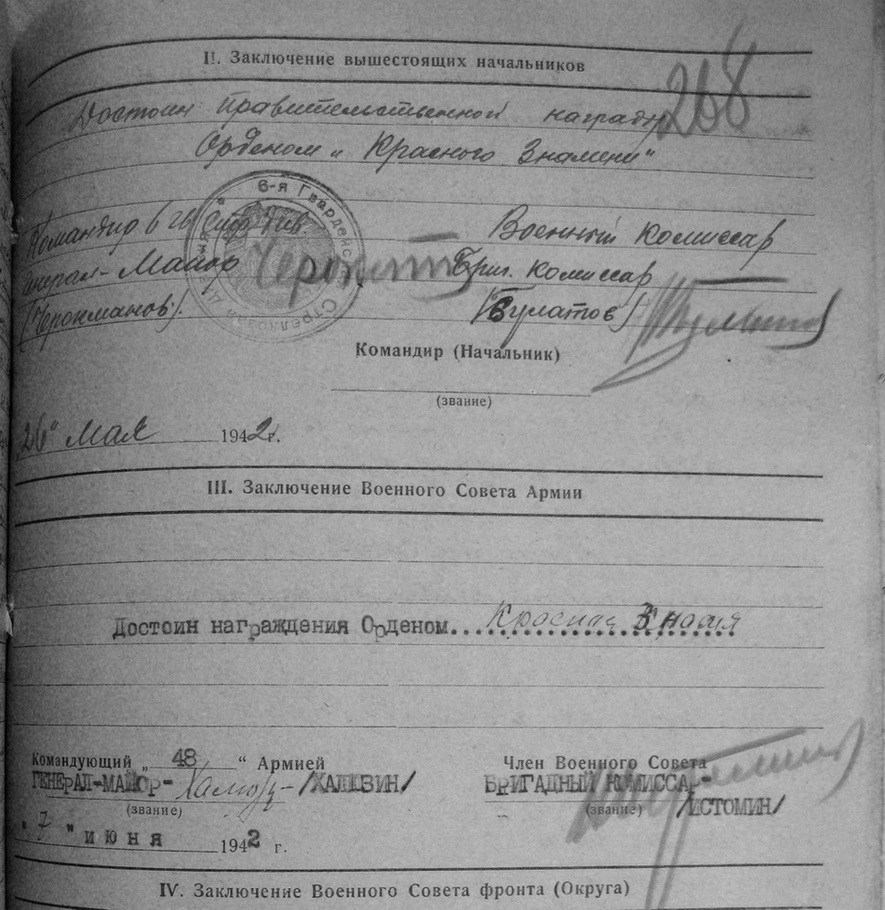 II. Заключение вышестоящих начальников
268
Достоин правительственной награды
Орденом „Красного Знамени"
6-я Гвардейская Стрелковая Дивизия
Командир 6 гв. стр. див. Военный комиссар
Генерал-Майор Бриг. комиссар
(Черокманов). (Булатов)
Командир (Начальник)
(звание)
26" Мая 1942г.
III. Заключение Военного Совета Армии
Достоин награждения Орденом... Красная Знамя
Командующий „ 48 " Армией Член Военного Совета
ГЕНЕРАЛ-МАЙОР- -/ХАЛЮЗИН/ БРИГАДНЫЙ КОМИССАР-
(звание) (звание) /ИСТОМИН/
"7" июня 1942 г.
IV. Заключение Военного Совета фронта (Округа)